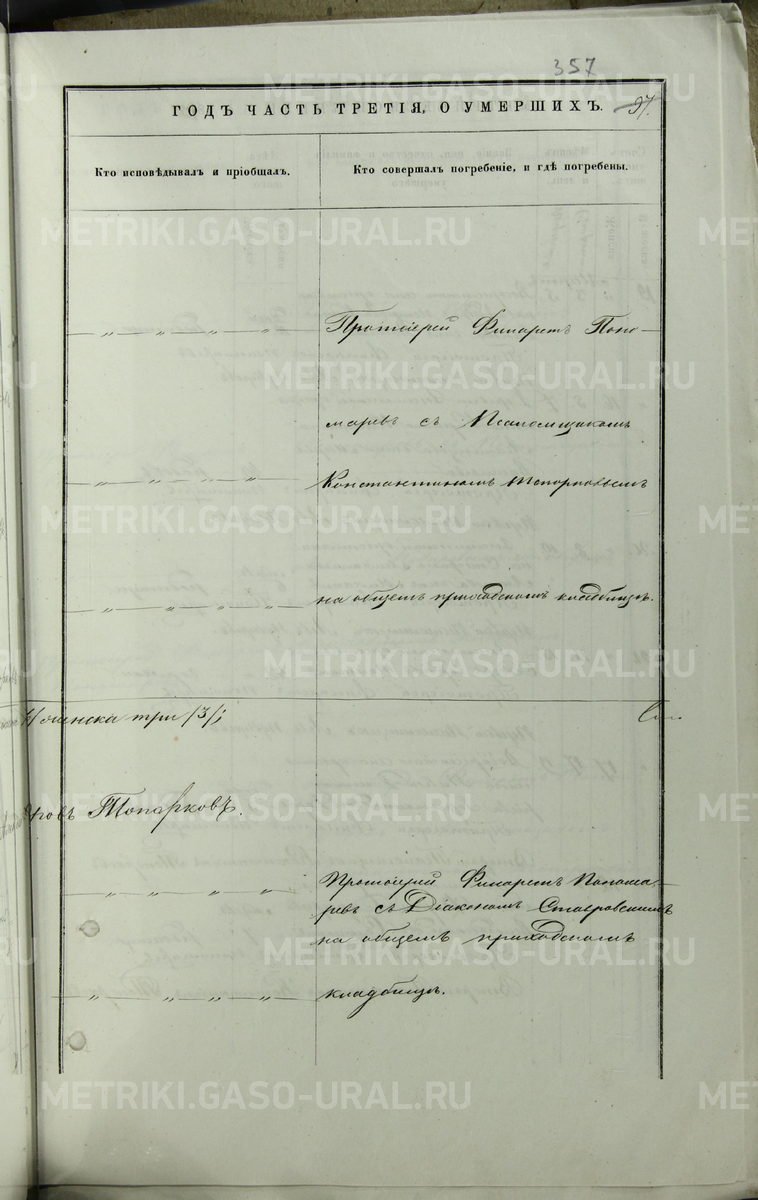 357
ГОДЪ ЧАСТЬ ТРЕТІЯ, О УМЕРШИХЪ. 97.
Кто исповѣдывалъ и пріобщалъ.
Кто совершалъ погребеніе, и гдѣ погребены.
METRIKI.GASO-URAL.RU
— „ — „ „ — „ —
Протоіерей Филаретъ Поно-
маревъ съ Псаломщикомъ
— „ — „ „ „ —
Константиномъ Топорковымъ
— „ — „ „ „ —
на общемъ приходскомъ кладбищѣ.
женска три /3/;
ковъ Топорковъ.
— „ „ „ „ —
Протоіерей Филаретъ Понома-
ревъ съ Діакономъ Ставровскимъ
на общемъ приходскомъ
— „ „ „ „ —
кладбищѣ.